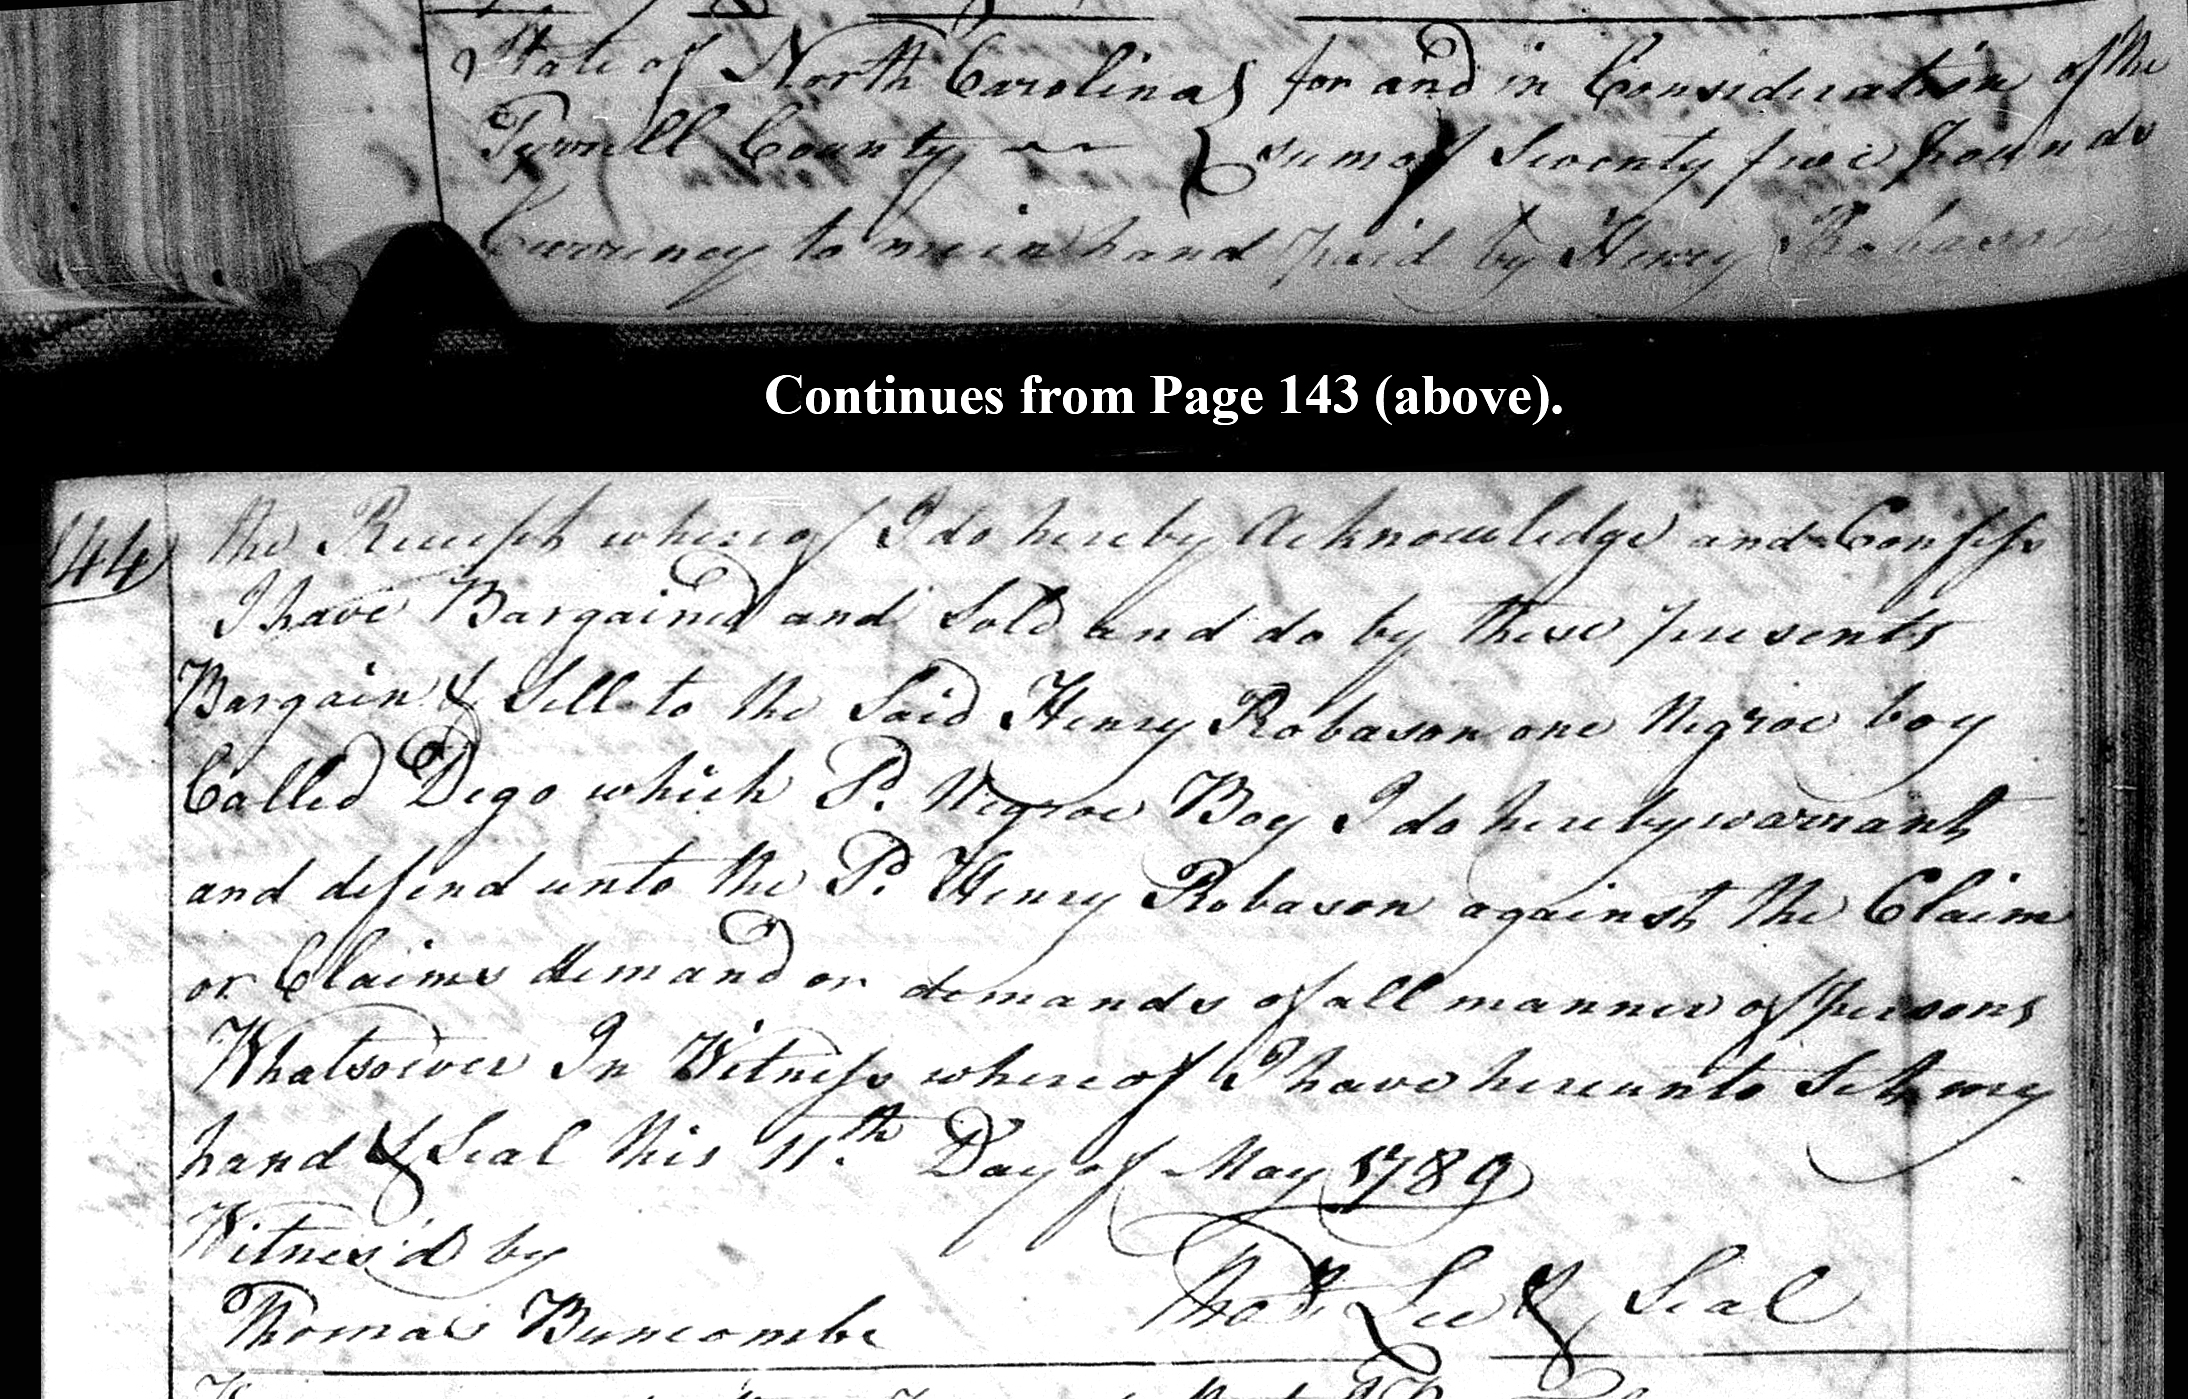 State of North Carolina } for and in Consideration of the
Tyrrell County } sum of Seventy five pounds
Currency to me in hand paid by Henry Robason
Continues from Page 143 (above).
144
the Receipt whereof I do hereby Acknowledge and Confess
I have Bargained and Sold and do by these presents
Bargain & Sell to the Said Henry Robason one Negroe boy
Called Dego which Sd. Negroe Boy I do hereby warrant
and defend unto the Sd. Henry Robason against the Claim
or Claims demand or demands of all manner of persons
Whatsoever In Witness whereof I have hereunto Set my
hand & Seal this 11th Day of May 1789
Witness'd by
Thos Lee & Seal
Thomas Buncombe